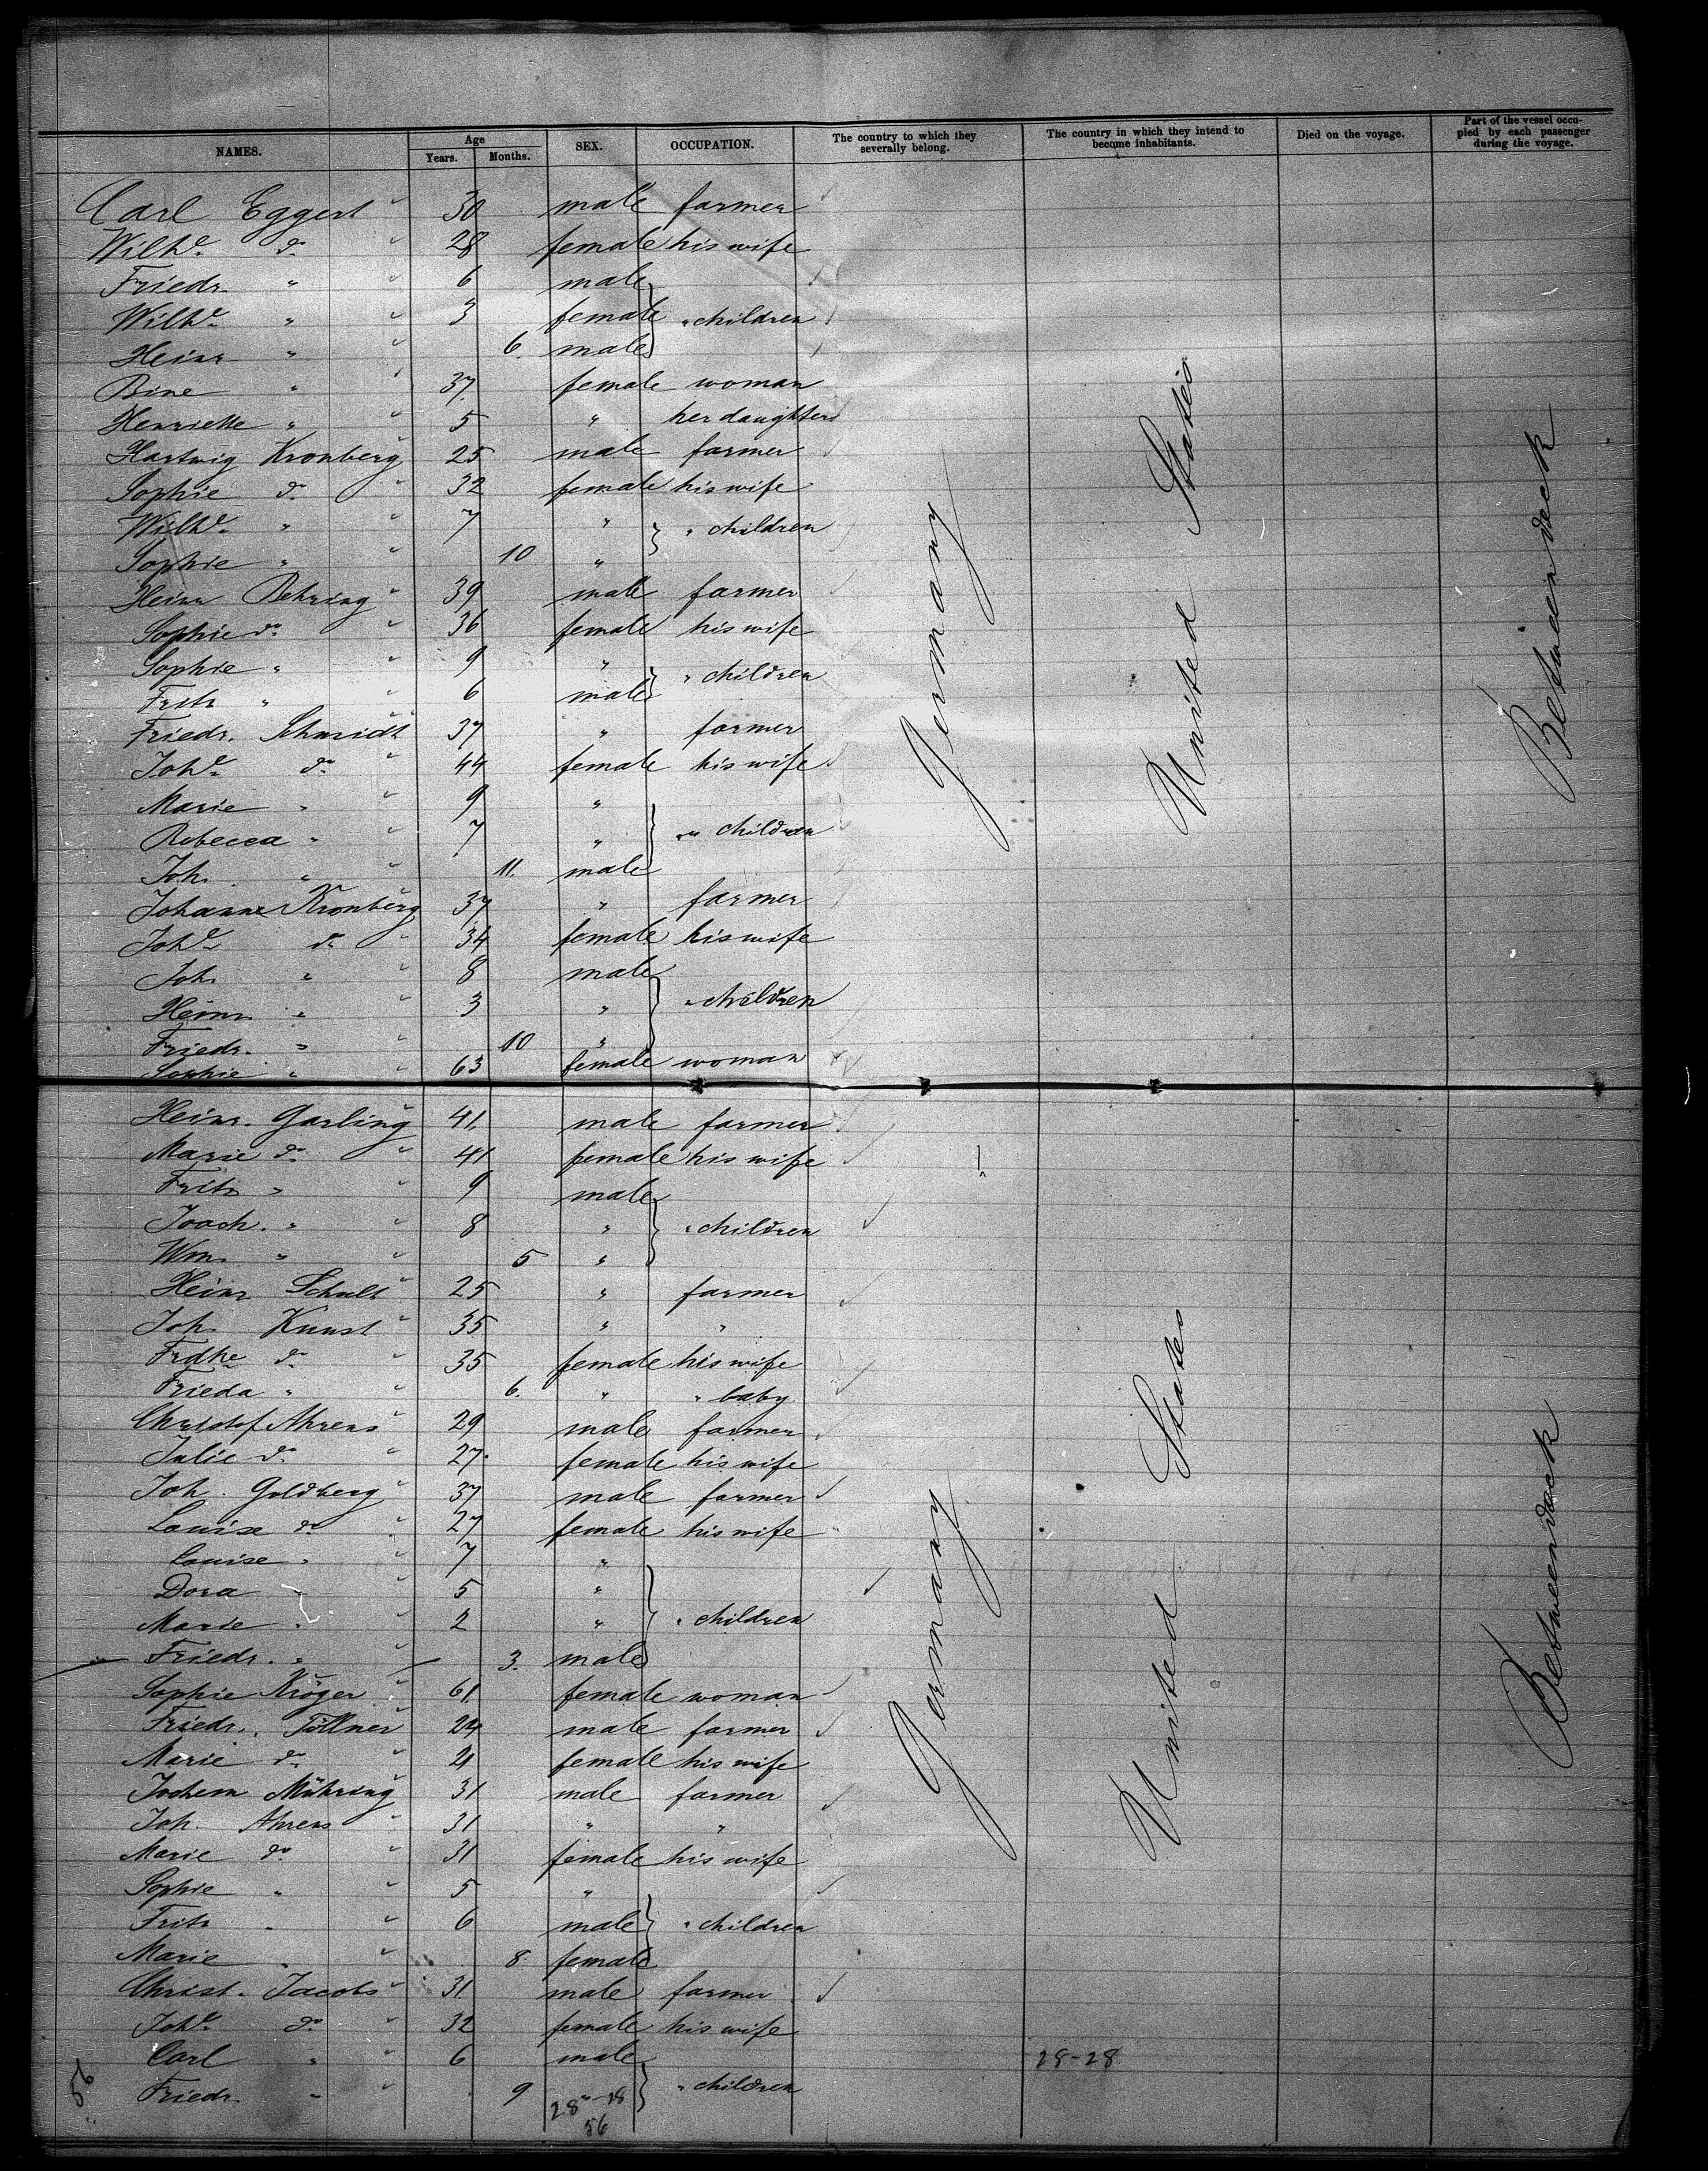 NAMES. Age Years. Months. SEX. OCCUPATION. The country to which they severally belong. The country in which they intend to become inhabitants. Died on the voyage. Part of the vessel occupied by each passenger during the voyage.
Carl Eggert 30 male farmer
Wilhe. do 28 female his wife
Friedr. " 6 male
Wilhe. " 3 female " children
Heinr " 6. male
Bine " 37. female woman
Henriette " 5 " her daughter
Hartwig Kronberg 25 male farmer
Sophie do 32 female his wife
Wilhe. " 7 " " children
Sophie " 10 "
Heinr Behring 39 male farmer
Sophie do 36 female his wife
Sophie " 9 " " children
Fritz " 6 male
Friedr. Schmidt 37 " farmer
Johe. do 44 female his wife
Marie " 9 "
Rebecca " 7 " " children
Joh. " 11. male
Johann Kronberg 37 " farmer
Johe. do 34 female his wife
Joh. " 8 male
Heinr. " 3 " " children
Friedr. " 10 "
Sophie " 63 female woman
Germany United States Betweendeck
Heinr. Garling 41 male farmer
Marie do 41 female his wife
Fritz " 9 male
Joach. " 8 " " children
Wm. " 5 "
Heinr Schult 25 " farmer
Joh. Kunst 35 " "
Frdke do 35 female his wife
Frieda " 6. " " baby
Christof Ahrens 29 male farmer
Julie do 27. female his wife
Joh. Goldberg 37 male farmer
Louise do 27 female his wife
Louise " 7 "
Dora " 5 "
Marie " 2 " " children
Friedr. " 3. male
Sophie Kröger 61 female woman
Friedr. Töllner 24 male farmer
Marie do 21 female his wife
Jochem Mühring 31 male farmer
Joh. Ahrens 31 " "
Marie do 31 female his wife
Sophie " 5 "
Fritz " 6 male " children
Marie " 8. female
Christ. Jacobs 31 male farmer
Johe. do 32 female his wife
Carl " 6 male
Friedr. " 9 " " children
Germany United States Betweendeck
28-28
28-28
56
56